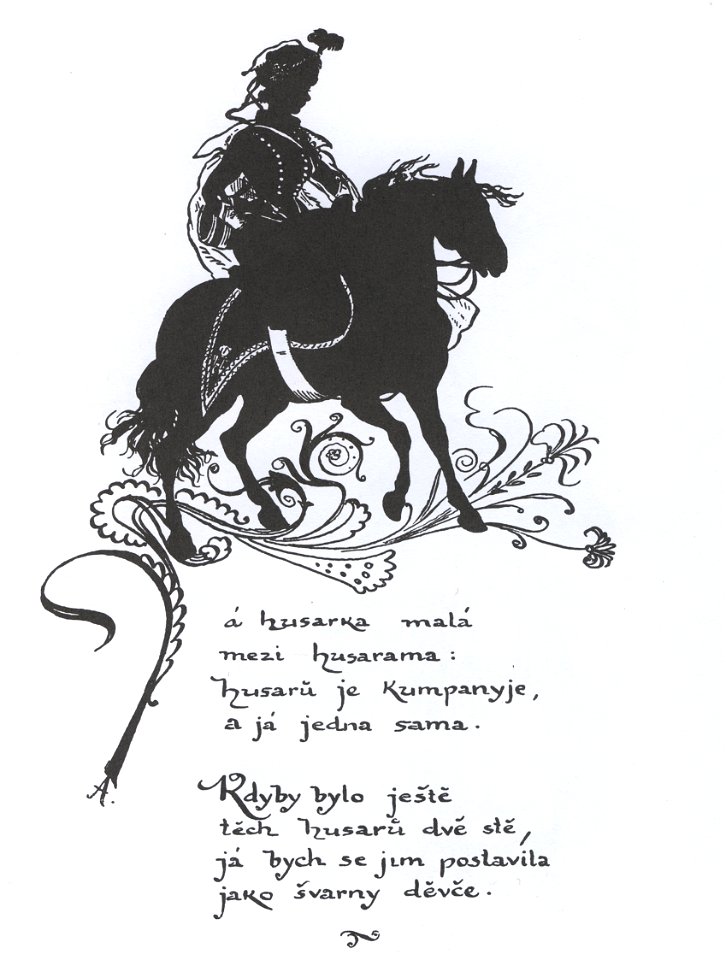 Já husarka malá
mezi husarama:
husarů je kumpanyje,
a já jedna sama.
A.
Kdyby bylo ještě
těch husarů dvě stě,
já bych se jim postavila
jako švarny děvče.